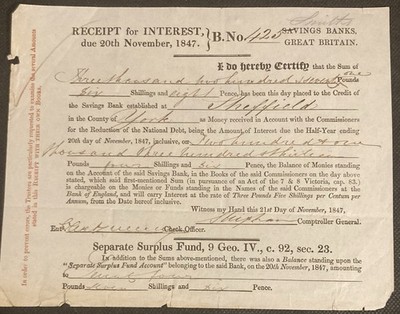 RECEIPT for INTEREST, due 20th November, 1847.
B. No. 423
SAVINGS BANKS, GREAT BRITAIN.
I do hereby Certify that the Sum of
Three thousand two hundred & seventy one Pounds
Six Shillings and eight Pence, has been this day placed to the Credit of
the Savings Bank established at Sheffield
in the County of York as Money received in Account with the Commissioners
for the Reduction of the National Debt, being the Amount of Interest due Half-Year ending
20th day of November, 1847, inclusive, on Two hundred & one
thousand three hundred &
Pounds four Shillings and six Pence, the Balance of Monies standing
on the Account of the said Savings Bank, in the Books of the said Commissioners on the day above
stated, which said first-mentioned Sum (in pursuance of an Act of the 7 & 8 Victoria, cap. 83.)
is chargeable on the Monies or Funds standing in the Names of the said Commissioners at the
Bank of England, and will carry Interest at the rate of Three Pounds Five Shillings per Centum per
Annum, from the Date hereof inclusive.
Witness my Hand this 21st Day of November, 1847,
Comptroller General.
Ent.
Check Officer.
Separate Surplus Fund, 9 Geo. IV., c. 92, sec. 23.
In addition to the Sums above-mentioned, there was also a Balance standing upon the
"Separate Surplus Fund Account" belonging to the said Bank, on the 20th November, 1847, amounting
to
Pounds Shillings and six Pence.
In order to prevent error, the Trustees are particularly requested to examine the several Amounts
stated in this RECEIPT with THEIR OWN BOOKS.